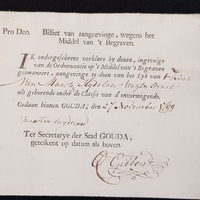 Pro Deo. Billiet van aangeevinge, wegens het
Middel van 't Begraven.
IK ondergeschreven verklare by dezen, ingevolge
van de Ordonnantie op 't Middel van 't Begraven
geëmaneert, aangevinge te doen van het Lyk van
als gehorende onder de Classis van d'onvermogende.
Gedaan binnen GOUDA; den 27 November 1769
Ter Secretarye der Stad GOUDA;
getekent op datum als boven.